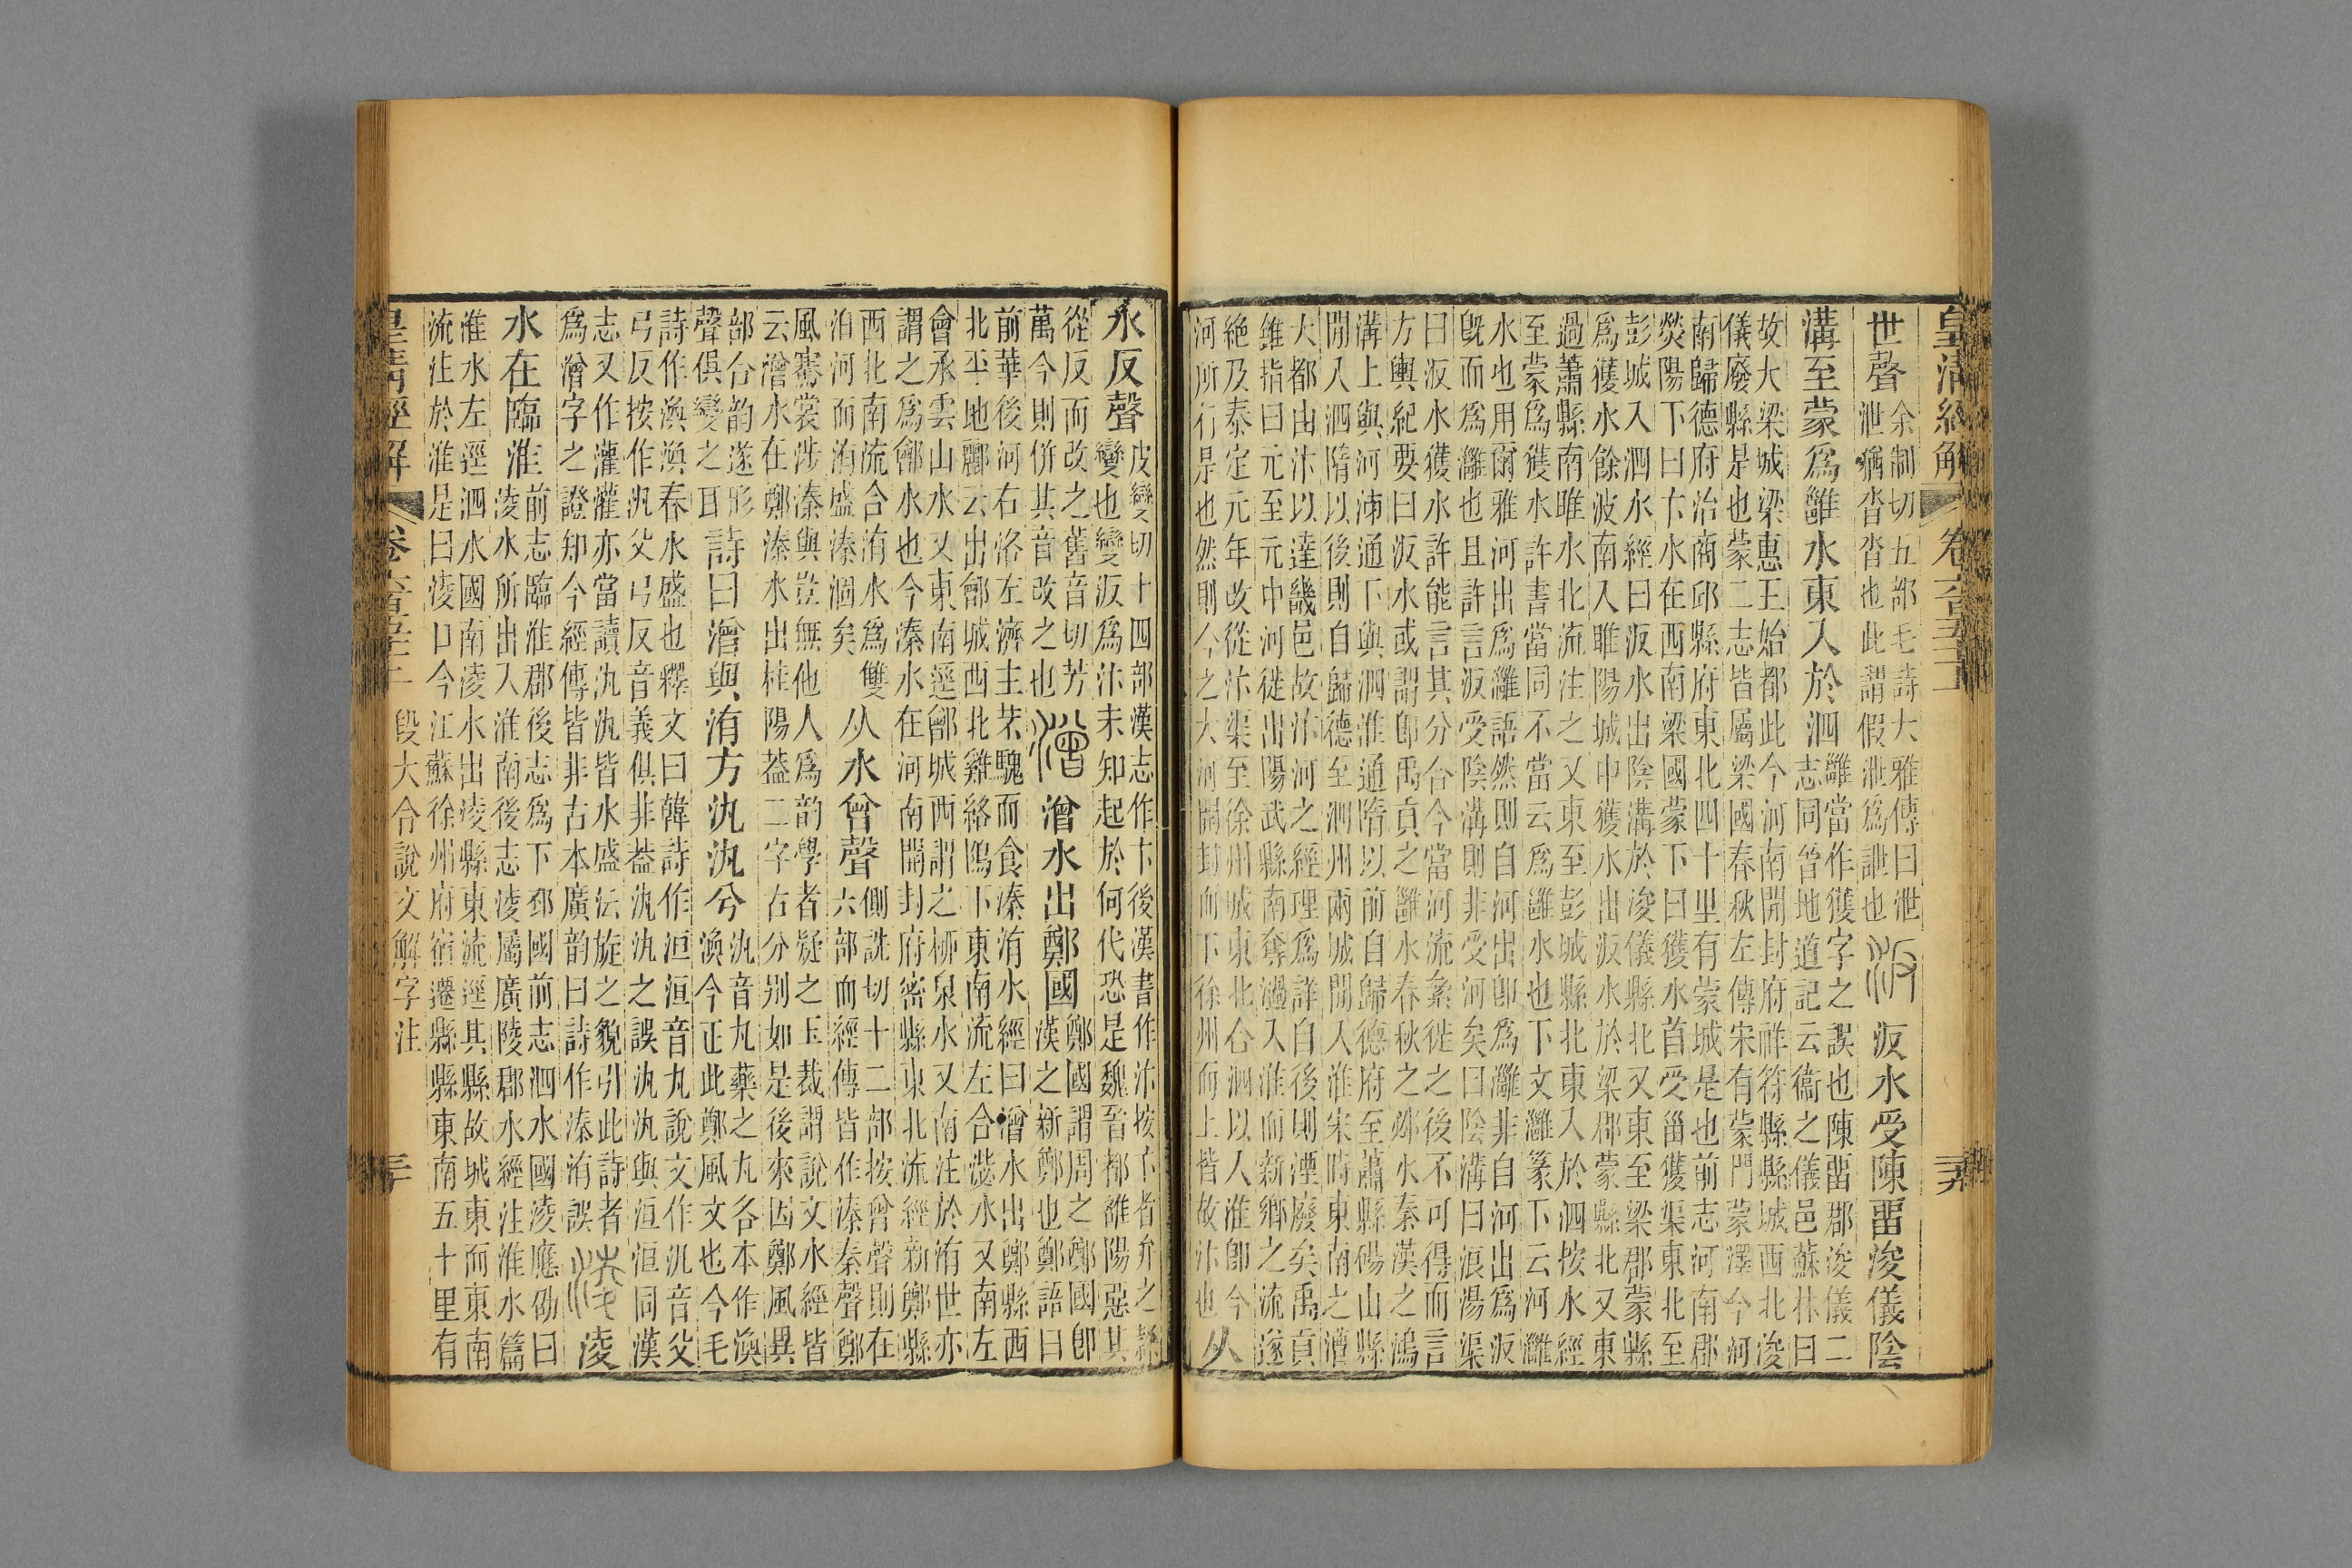 皇清經解 卷
世聲 余制切五部毛詩大雅傳曰泄
泄猶沓沓也此謂假泄爲詍也
汳水受陳畱浚儀陰
溝至蒙爲雝水東入於泗 雝當作獲字之誤也陳畱郡浚儀二
志同晉地道記云衞之儀邑蘇林曰
故大梁城梁惠王始都此今河南開封府祥符縣縣城西北浚
儀廢縣是也蒙二志皆屬梁國春秋左傳宋有蒙門蒙澤今河
南歸德府治商邱縣府東北四十里有蒙城是也前志河南郡
滎陽下曰卞水在西南梁國蒙下曰獲水首受甾獲渠東北至
彭城入泗水經曰汳水出陰溝於浚儀縣北又東至梁郡蒙縣
爲獲水餘波南入睢陽城中獲水出汳水於梁郡蒙縣北又東
過蕭縣南睢水北流注之又東至彭城縣北東入於泗按水經
至蒙爲獲水許書當同不當云爲雝水也下文灉篆下云河灉
水也用爾雅河出爲灉語然則自河出卽爲灉非自河出爲汳
旣而爲灉也且許言汳受陰溝則非受河矣曰陰溝曰浪湯渠
曰汳水獲水許能言其分合今當河流紊徙之後不可得而言
方輿紀要曰汳水或謂卽禹貢之灉水春秋之邲水秦漢之鴻
溝上與河泲通下與泗淮通隋以前自歸德府至蕭縣碭山縣
閒入泗隋以後則自歸德至泗州兩城閒入淮宋時東南之漕
大都由汴以達畿邑故汴河之經理爲詳自後則湮廢矣禹貢
維指曰元至元中河徙出陽武縣南奪渦入淮而新鄉之流遂
絶及泰定元年改從汴渠至徐州城東北合泗以入淮卽今
河所行是也然則今之大河開封而下徐州而上皆故汴也
从
水反聲 皮變切十四部漢志作卞後漢書作汴按卞者弁之隸
變也變汳爲汴未知起於何代恐是魏晉都雒陽惡其
從反而改之舊音切芳
萬今則併其音改之也
潧 潧水出鄭國 鄭國謂周之鄭國卽
漢之新鄭也鄭語曰
前華後河右洛左濟主芣騩而食溱洧水經曰潧水出鄭縣西
北平地酈云出鄶城西北雞絡隖下東南流左合水又南左
會承雲山水又東南逕鄶城西謂之柳泉水又南注於洧世亦
謂之爲鄶水也今溱水在河南開封府密縣東北流經新鄭縣
西北南流合洧水爲雙
洎河而洧盛溱涸矣
从水曾聲 側詵切十二部按曾聲則在
六部而經傳皆作溱秦聲鄭
風褰裳涉溱與豈無他人爲韵學者疑之玉裁謂說文水經皆
云潧水在鄭溱水出桂陽葢二字古分別如是後來因鄭風異
部合韵遂形
聲俱變之耳
詩曰潧與洧方汍汍兮 汍音九藥之九各本作渙
渙今正此鄭風文也今毛
詩作渙渙春水盛也釋文曰韓詩作洹洹音丸說文作汎音父
弓反按作汎父弓反音義俱非葢汍汍之誤汍汍與洹洹同漢
志又作灌灌亦當讀汍汍皆水盛沄旋之貌引此詩者
爲潧字之證知今經傳皆非古本廣韵曰詩作溱洧誤
淩
水在臨淮 前志臨淮郡後志爲下邳國前志泗水國淩應劭曰
淩水所出入淮南後志淩屬廣陵郡水經注淮水篇
淮水左逕泗水國南淩水出淩縣東流逕其縣故城東而東南
流注於淮是曰淩口今江蘇徐州府宿遷縣縣東南五十里有
段大令說文解字注